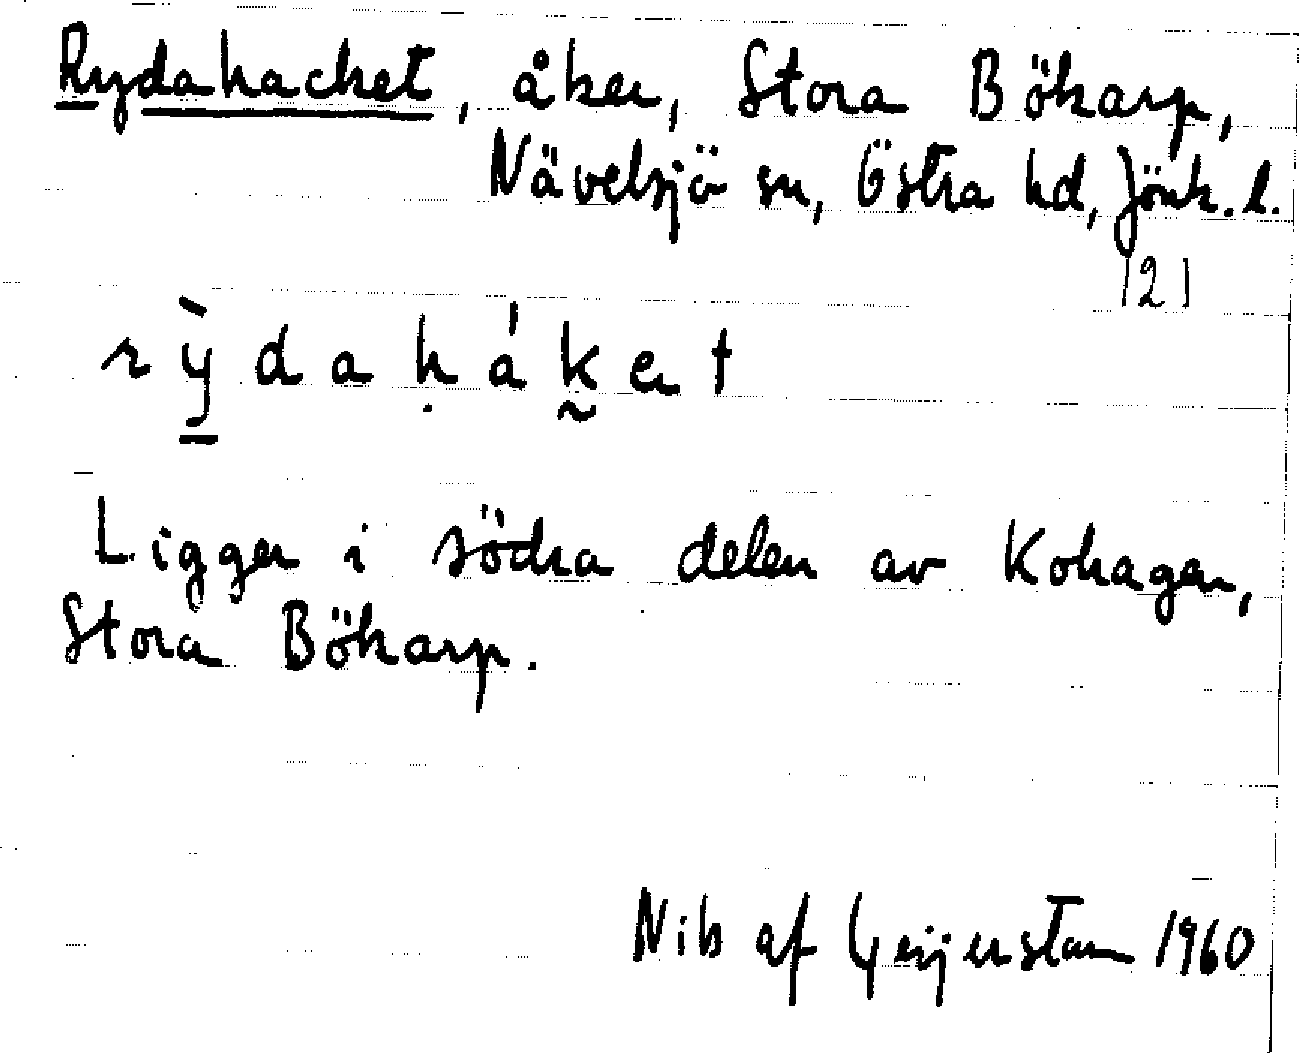 Rydahacket, åker, Stora Bökarp,
Nävelsjö sn, Östra hd, Jönk. l.
121
rỳdaḥák̰et
Ligger i södra delen av Kohagen,
Stora Bökarp.
Nils af Geijerstam 1960